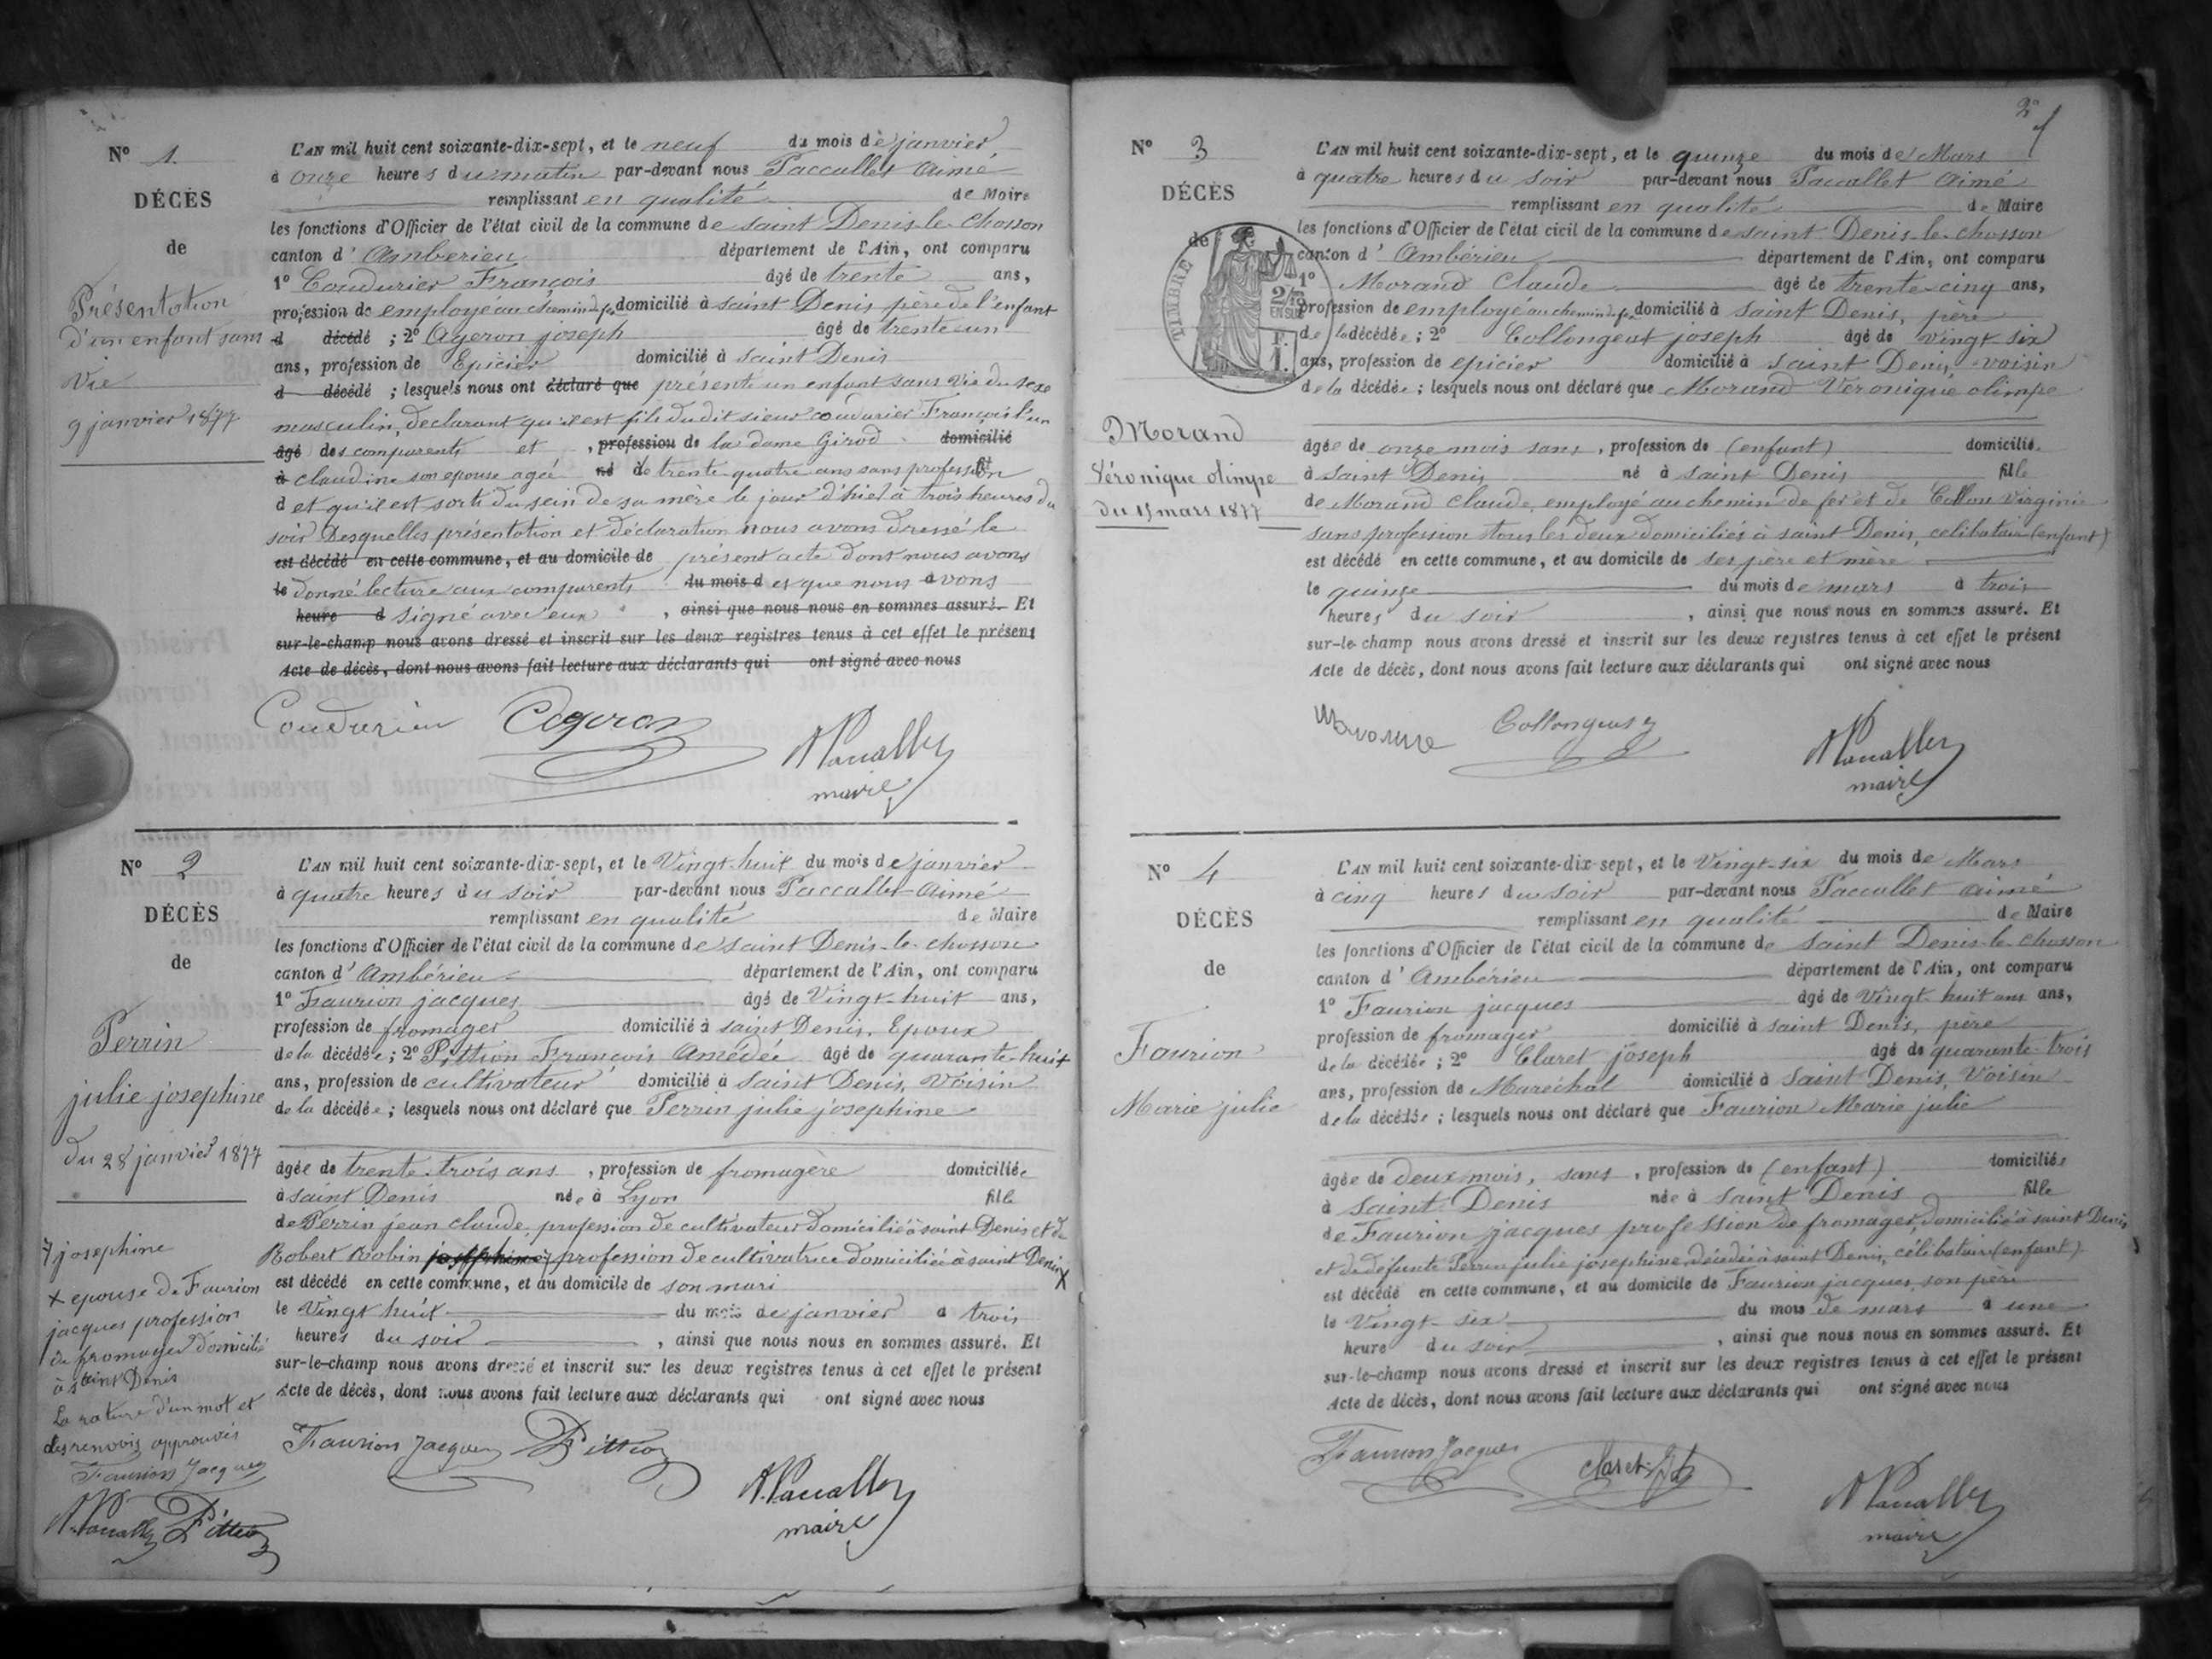 N° 1
DÉCÈS
de
Présentation
d'un enfant sans
vie
9 janvier 1877
L'AN mil huit cent soixante-dix-sept, et le neuf du mois de janvier
à onze heures du matin par-devant nous Paccallet Aimé
remplissant en qualité de Maire
les fonctions d'Officier de l'état civil de la commune de saint Denis-le-chosson
canton d'Ambérieu département de l'Ain, ont comparu
1° Coudurier François âgé de trente ans,
profession de employé au chemin de fer domicilié à saint Denis père de l'enfant
d décédé ; 2° Ageron joseph âgé de trente un
ans, profession de Epicier domicilié à saint Denis
d décédé ; lesquels nous ont déclaré que présenté un enfant sans vie du sexe
masculin, declarant qu'il est fils dudit sieur coudurier François l'un
âgé des comparents et , profession de la dame Girod domicilié
à claudine son epouse agée né de trente-quatre ans sans profession
d et qu'il est sorti du sein de sa mère le jour d'hier à trois heures du
soir Desquelles présentation et déclaration nous avons dressé le
est décédé en cette commune, et au domicile de présent acte dont nous avons
le donné lecture aux comparents du mois d et que nous avons
heure d signé avec eux , ainsi que nous nous en sommes assuré. Et
sur-le-champ nous avons dressé et inscrit sur les deux registres tenus à cet effet le présent
Acte de décès, dont nous avons fait lecture aux déclarants qui ont signé avec nous
Coudurier Ageron A Paccallet
maire
N° 2
DÉCÈS
de
Perrin
julie josephine
du 28 janvier 1877
L'AN mil huit cent soixante-dix-sept, et le Vingt-huit du mois de janvier
à quatre heures du soir par-devant nous Paccallet Aimé
remplissant en qualité de Maire
les fonctions d'Officier de l'état civil de la commune de saint Denis-le-chosson
canton d'Ambérieu département de l'Ain, ont comparu
1° Faurion jacques âgé de Vingt-huit ans,
profession de fromager domicilié à saint Denis, Epoux
de la décédée ; 2° Pittion François Amédée âgé de quarante-huit
ans, profession de cultivateur domicilié à saint Denis, Voisin
de la décédée ; lesquels nous ont déclaré que Perrin julie josephine
âgée de trente-trois ans , profession de fromagère domiciliée
à saint Denis née à Lyon fille
de Perrin jean claude, profession de cultivateur domicilié à saint Denis et de
Robert Robin profession de cultivatrice domiciliée à saint Denis X
est décédé en cette commune, et au domicile de son mari
le Vingt huit du mois de janvier à trois
heures du soir , ainsi que nous nous en sommes assuré. Et
sur-le-champ nous avons dressé et inscrit sur les deux registres tenus à cet effet le présent
Acte de décès, dont nous avons fait lecture aux déclarants qui ont signé avec nous
josephine
X epouse de Faurion
jacques profession
de fromager domicilié
à saint Denis
La rature d'un mot et
des renvois approuvés
Faurion Jacques
A. Paccallet Pittion
Faurion Jacques Pittion
A. Paccallet
maire
2e
N° 3
DÉCÈS
de
TIMBRE
2/10
EN SUS
Morand
Véronique olimpe
du 15 mars 1877
L'AN mil huit cent soixante-dix-sept, et le quinze du mois de Mars
à quatre heures du soir par-devant nous Paccallet Aimé
remplissant en qualité de Maire
les fonctions d'Officier de l'état civil de la commune de saint Denis-le-chosson
canton d'Ambérieu département de l'Ain, ont comparu
1° Morand Claude âgé de trente-cinq ans,
profession de employé au chemin de fer domicilié à saint Denis, père
de la décédée ; 2° Collongeat joseph âgé de vingt six
ans, profession de epicier domicilié à saint Denis voisin
de la décédée ; lesquels nous ont déclaré que Morand Véronique olimpe
âgée de onze mois sans , profession de (enfant) domicilié
à saint Denis né à saint Denis fille
de Morand claude, employé au chemin de fer et de Collon virginie
sans profession tous les deux domiciliés à saint Denis, celibataire (enfant)
est décédé en cette commune, et au domicile de ses père et mère
le quinze du mois de mars à trois
heures du soir , ainsi que nous nous en sommes assuré. Et
sur-le-champ nous avons dressé et inscrit sur les deux registres tenus à cet effet le présent
Acte de décès, dont nous avons fait lecture aux déclarants qui ont signé avec nous
Collongeat A Paccallet
maire
N° 4
DÉCÈS
de
Faurion
Marie julie
L'AN mil huit cent soixante-dix-sept, et le Vingt-six du mois de Mars
à cinq heures du soir par-devant nous Paccallet Aimé
remplissant en qualité de Maire
les fonctions d'Officier de l'état civil de la commune de saint Denis-le-chosson
canton d'Ambérieu département de l'Ain, ont comparu
1° Faurion jacques âgé de Vingt-huit ans ans,
profession de fromager domicilié à saint Denis, père
de la décédée ; 2° Claret joseph âgé de quarante-trois
ans, profession de Maréchal domicilié à saint Denis, Voisin
de la décédée ; lesquels nous ont déclaré que Faurion Marie julie
âgée de deux mois, sans , profession de (enfant) domiciliée
à saint Denis née à saint Denis fille
de Faurion jacques profession de fromager, domicilié à saint Denis,
et de défunte Perrin julie josephine, décédée à saint Denis, célibataire (enfant)
est décédé en cette commune, et au domicile de Faurion jacques, son père
le Vingt-six du mois de mars à une
heure du soir , ainsi que nous nous en sommes assuré. Et
sur-le-champ nous avons dressé et inscrit sur les deux registres tenus à cet effet le présent
Acte de décès, dont nous avons fait lecture aux déclarants qui ont signé avec nous
Faurion Jacques Claret A Paccallet
maire